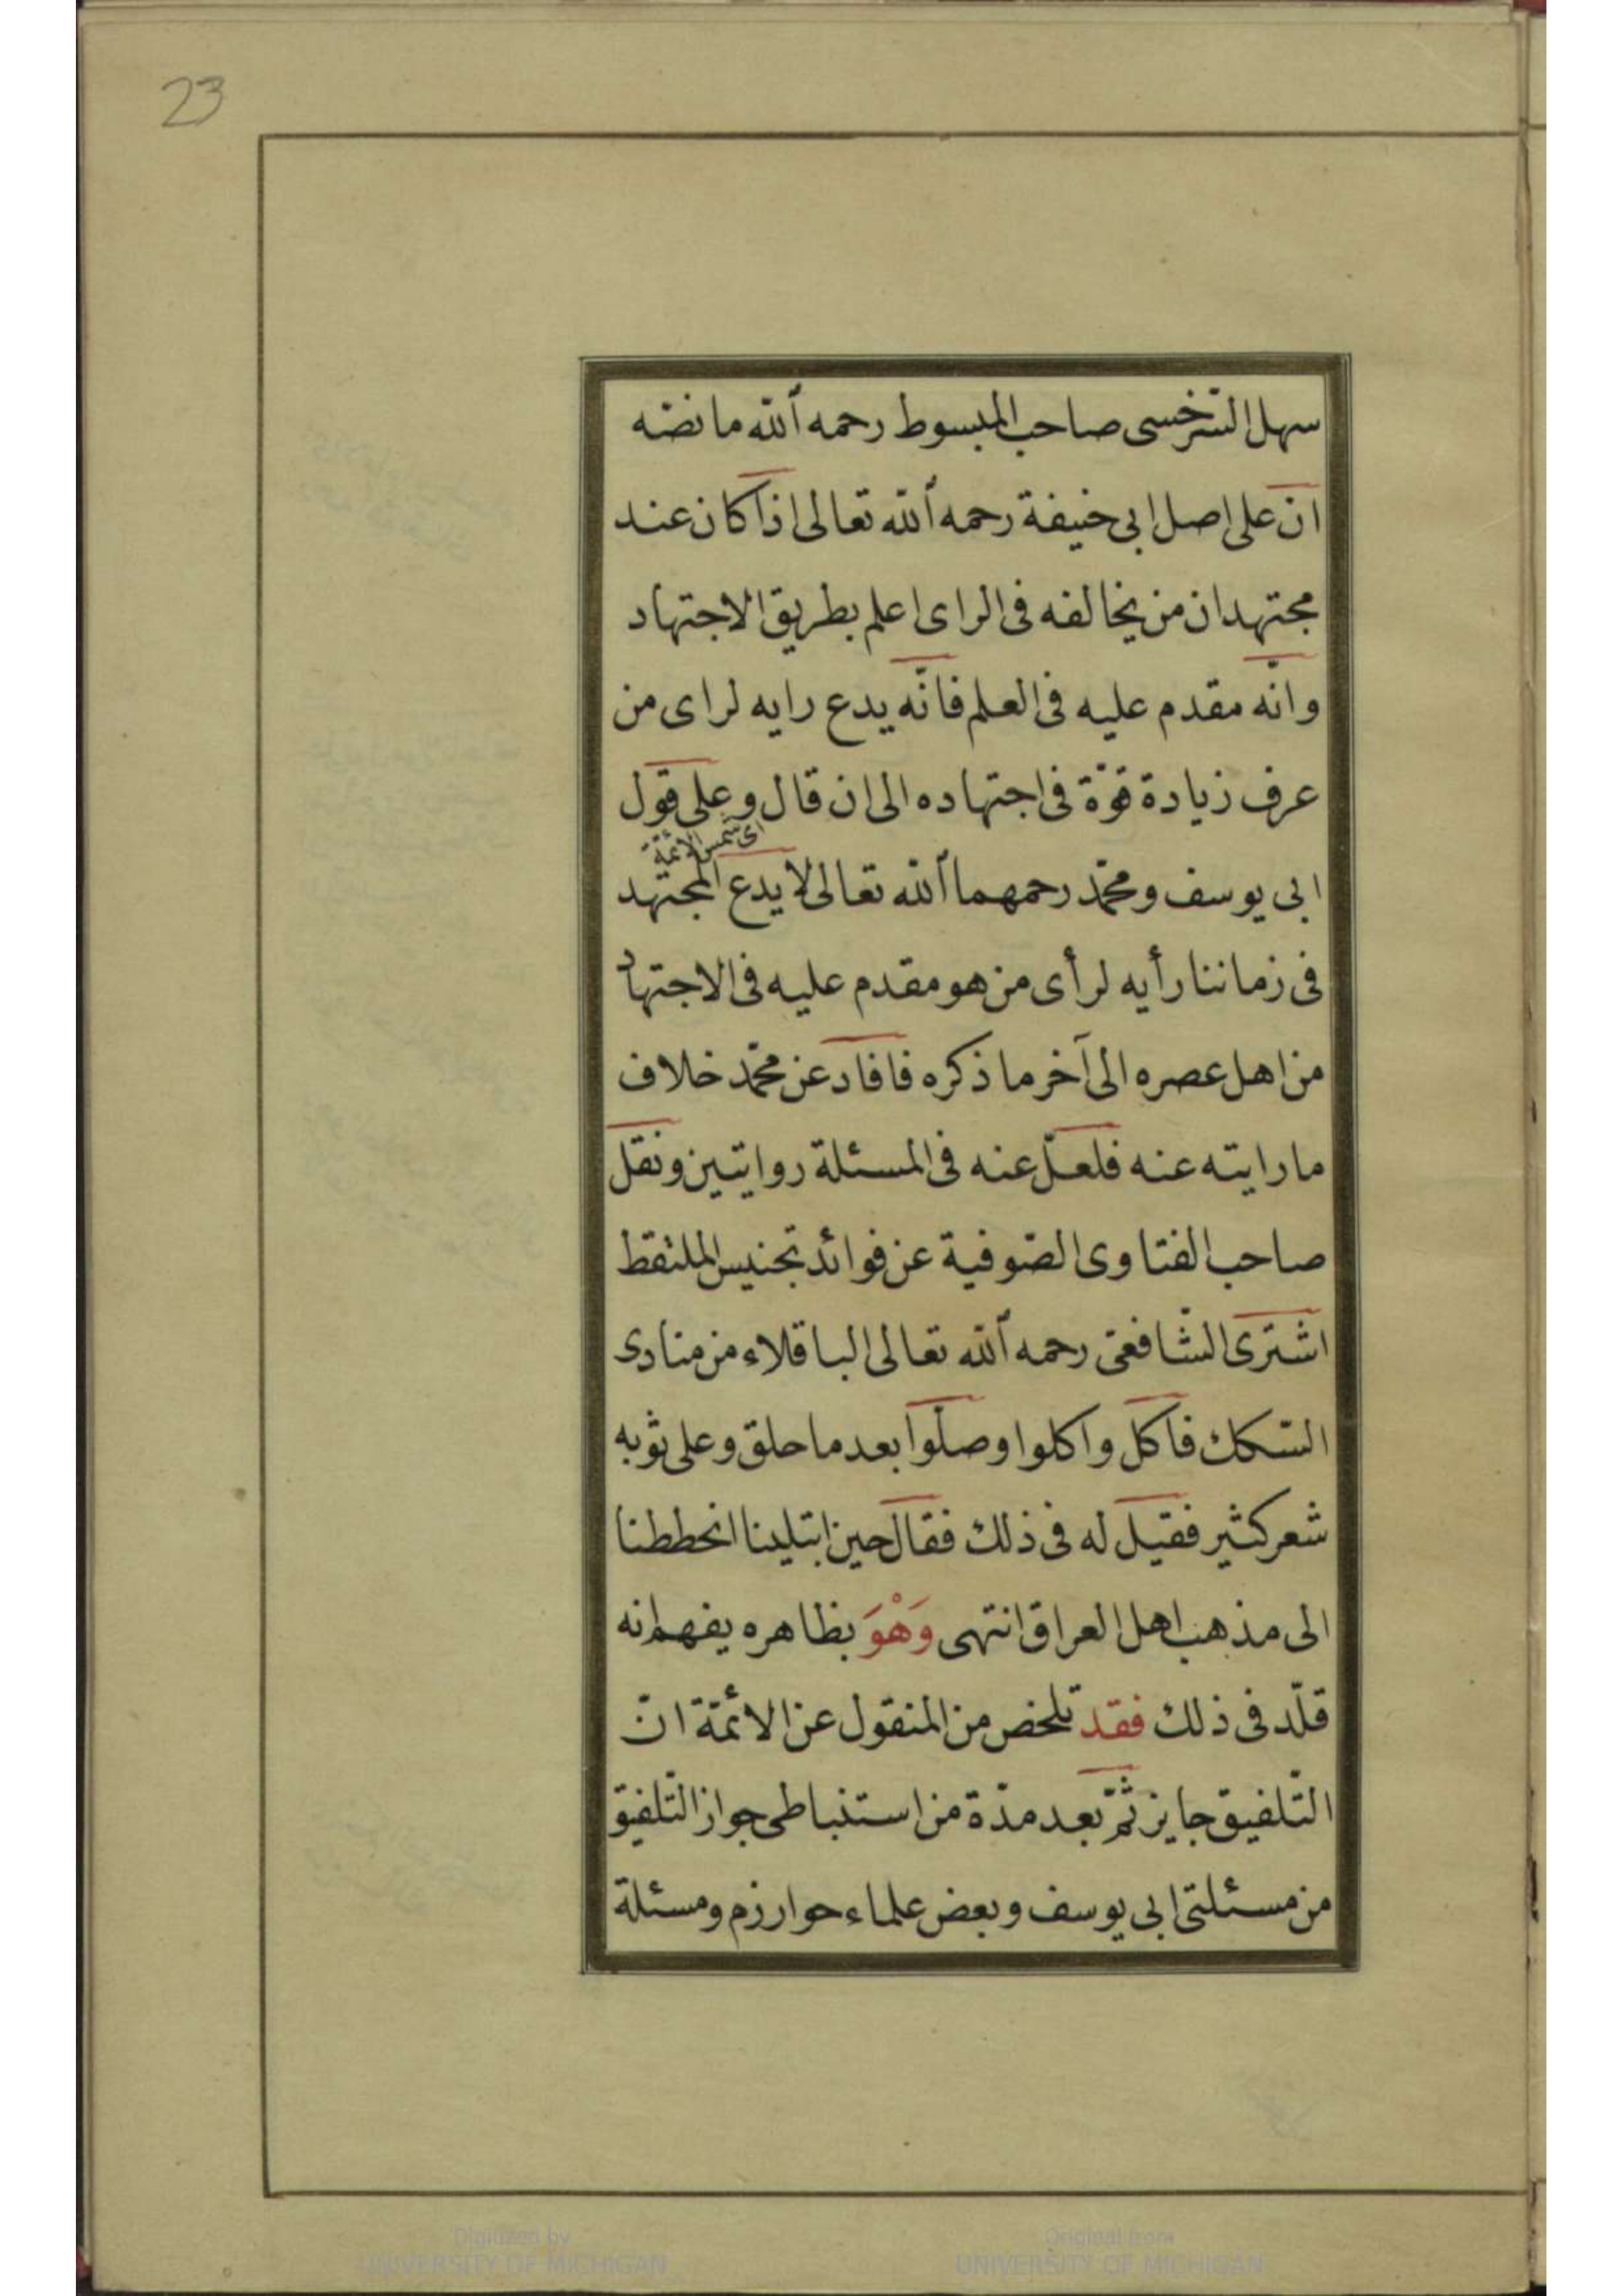 23
سهل السّرخسى صاحب المبسوط رحمه الله ما نصّه
انّ على اصل ابى حنيفة رحمه الله تعالى اذا كان عند
مجتهد ان من يخالفه فى الراى اعلم بطريق الاجتهاد
وانّه مقدم عليه فى العلم فانّه يدع رايه لراى من
عرف زيادة قوّة فى اجتهاده الى ان قال وعلى قول
اى شمس الائمّة
ابى يوسف ومحمّد رحمهما الله تعالى لا يدع المجتهد
فى زماننا رأيه لرأى من هو مقدم عليه فى الاجتهاد
من اهل عصره الى آخر ما ذكره فافاد عن محمّد خلاف
ما رايته عنه فلعلّ عنه فى المسئلة روايتين ونقل
صاحب الفتاوى الصّوفية عن فوائد تجنيس الملتقط
اشترى الشّافعىّ رحمه الله تعالى الباقلاء من منادى
السّكك فاكل واكلوا وصلّوا بعد ما حلق وعلى ثوبه
شعر كثير فقيل له فى ذلك فقال حين ابتلينا انحططنا
الى مذهب اهل العراق انتهى وَهْوَ بظاهره يفهم انه
قلّد فى ذلك فقد تلخص من المنقول عن الائمّة انّ
التّلفيق جايز ثمّ بعد مدّة من استنباطى جواز التّلفيق
من مسئلتى ابى يوسف وبعض علماء حوارزم ومسئلة
Digitized by
UNIVERSITY OF MICHIGAN
Original from
UNIVERSITY OF MICHIGAN